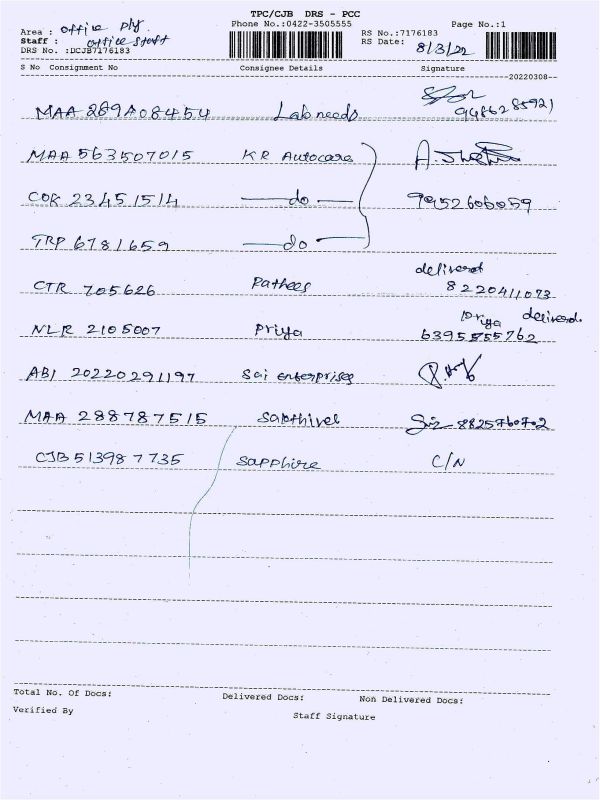 TPC/CJB DRS - PCC
Phone No.:0422-3505555
Page No.:1
Area : office ply
Staff : office staff
DRS No. :DCJB7176183
RS No.:7176183
RS Date: 8/3/22
S No Consignment No Consignee Details Signature
--20220308--
MAA 289A08454 Lab needs 9486285921
MAA 563507015 KR Autocare
COK 23451514 —do— 9952606059
TRP 6781659 —do—
CTR 705626 Pathees delivered 8220411073
NLR 2105007 Priya Priya delivered. 6395555762
ABI 20220291197 Sai enterprises
MAA 288787515 Sakthivel 8825760702
CJB 513987735 Sapphire C/N
Total No. Of Docs: Delivered Docs: Non Delivered Docs:
Verified By Staff Signature